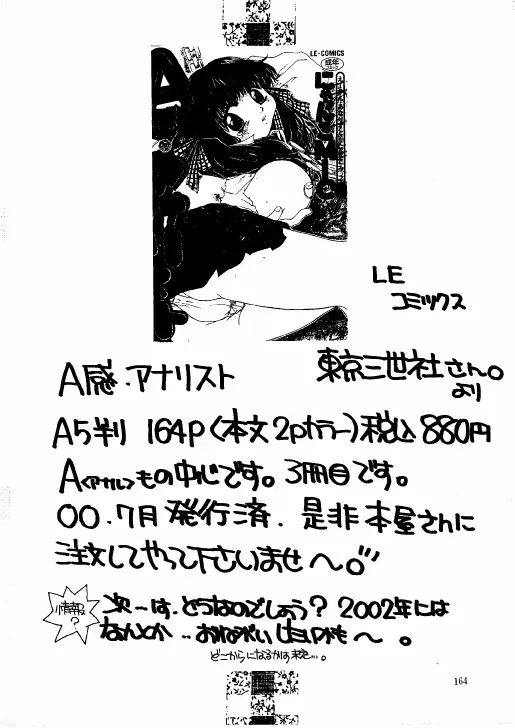 LE-COMICS
成年
LE
コミックス
A感・アナリスト
東京三世社さん。
より
A5判 164P(本文2Pカラー)税込880円
A<アナル>もの中心です。3冊目です。
00.7月発行済.是非本屋さんに
注文してやって下さいませ〜。
情報?
次ーは、どうなのでしょう?2002年には
なんとか
どこからになるかは秘...。
164